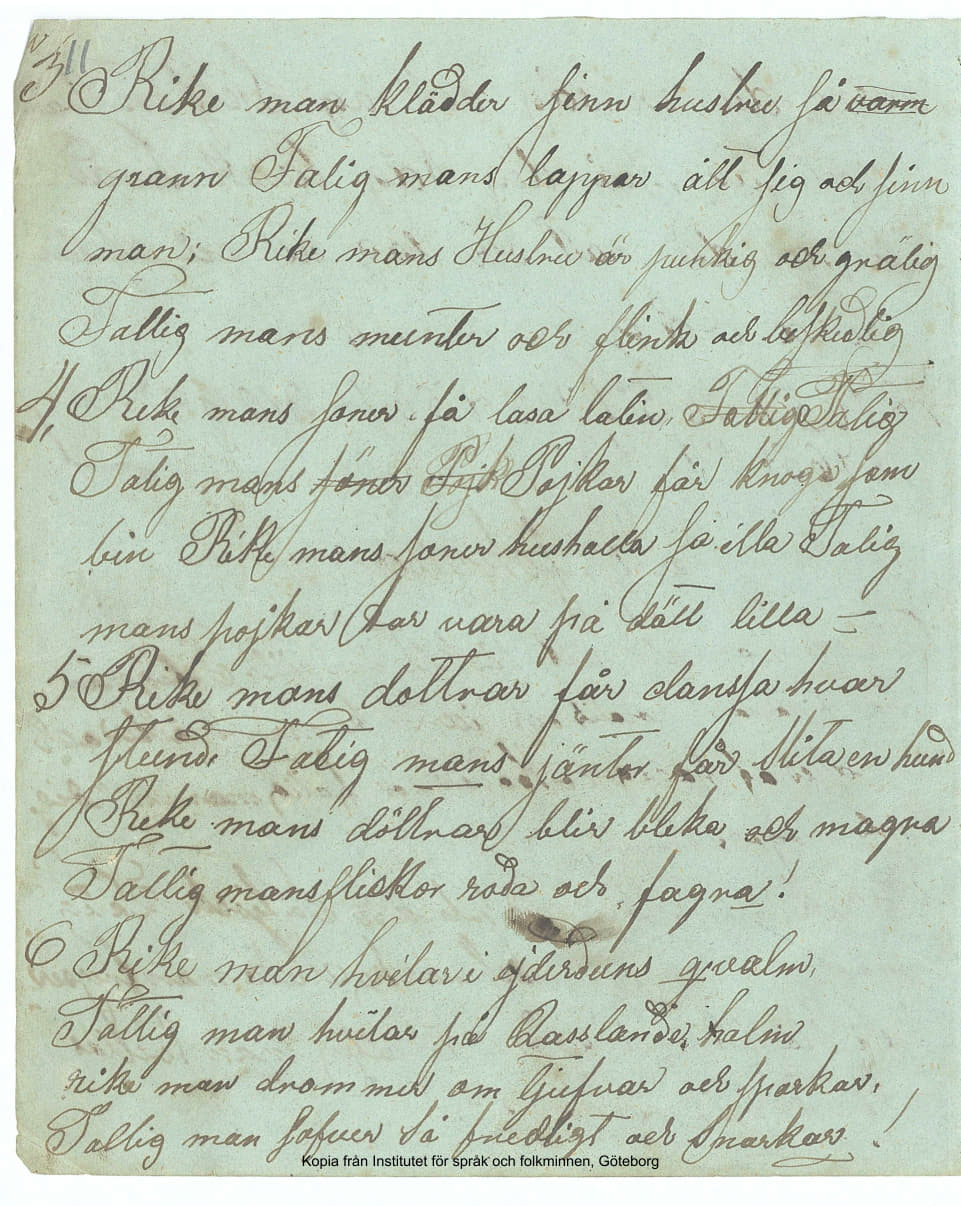 3 11 Rike man klädder sinn hustru så varm
grann Falig mans lappar ått sig och sinn
man; Rike mans Hustru är puckig och grälig
Fattig mans munter och flink och beskedlig
4, Rike mans soner få lasa latin, Fattig Falig
Fatig mans söner Pojk Pojkar får knoga som
bin Rike mans soner hushalla så illa Fatig
mans pojkar tar vara på dått lilla –
5 Rike mans dottrar får danssa hvar
stund, Fatig mans jäntor får slita en hund
Rike mans döttrar blir bleka och magra
Fattig mans flickor roda och fagra!
6 Rike man hvilar i ejderduns qvalm,
Fattig man hvilar på Rasslande halm
rike man drommer om tjufvar och sparkar,
Fattig man sofver så fredligt och snarkar!
Kopia från Institutet för språk och folkminnen, Göteborg